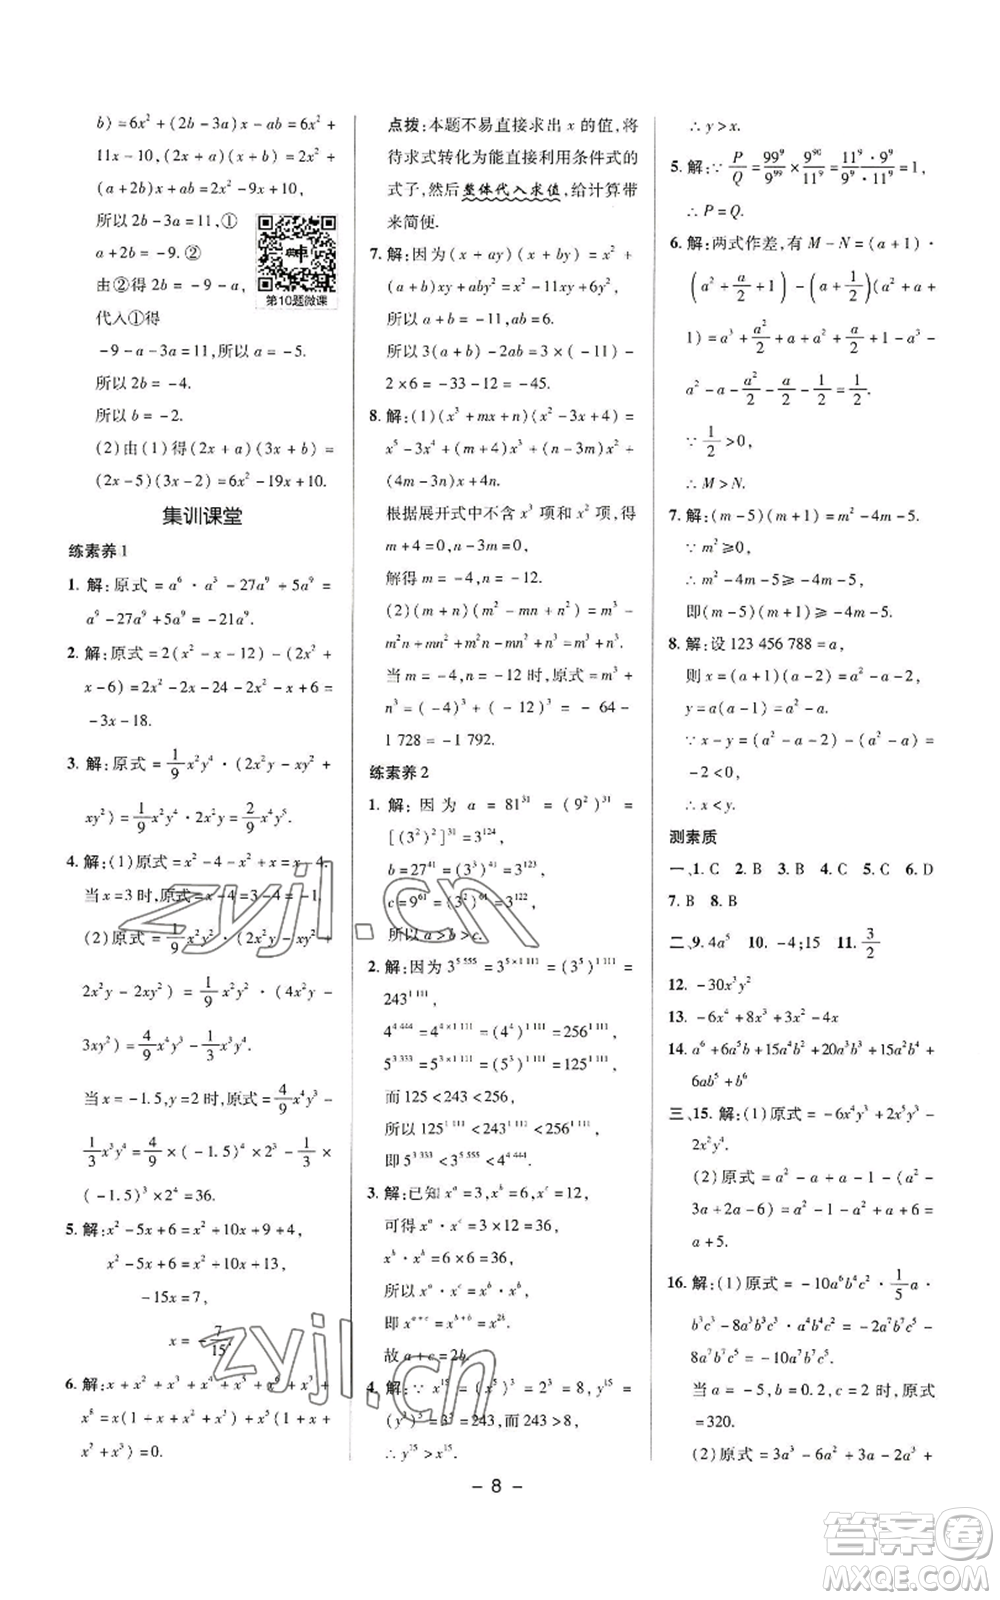 b)=6x²+(2b-3a)x-ab=6x²+
11x-10,(2x+a)(x+b)=2x²+
(a+2b)x+ab=2x²-9x+10,
所以2b-3a=11,①
a+2b=-9.②
由②得2b=-9-a,
代入①得
-9-a-3a=11,所以a=-5.
所以2b=-4.
所以b=-2.
(2)由(1)得(2x+a)(3x+b)=
(2x-5)(3x-2)=6x²-19x+10.
第10题微课
集训课堂
练素养1
1. 解:原式=a⁶·a³-27a⁹+5a⁹=
a⁹-27a⁹+5a⁹=-21a⁹.
2. 解:原式=2(x²-x-12)-(2x²+
x-6)=2x²-2x-24-2x²-x+6=
-3x-18.
3. 解:原式=1/9x²y⁴·(2x²y-xy²+
xy²)=1/9x²y⁴·2x²y=2/9x⁴y⁵.
4. 解:(1)原式=x²-4-x²+x=x-4.
当x=3时,原式=x-4=3-4=-1.
(2)原式=1/9x²y²·(2x²y+3xy²+
2x²y-2xy²)=1/9x²y²·(4x²y-
3xy²)=4/9x⁴y³-1/3x³y⁴.
当x=-1.5,y=2时,原式=4/9x⁴y³-
1/3x³y⁴=4/9×(-1.5)⁴×2³-1/3×
(-1.5)³×2⁴=36.
5. 解:x²-5x+6=x²+10x+9+4,
x²-5x+6=x²+10x+13,
-15x=7,
x=-7/15.
6. 解:x+x²+x³+x⁴+x⁵+x⁶+x⁷+
x⁸=x(1+x+x²+x³)+x⁵(1+x+
x²+x³)=0.
点拨:本题不易直接求出x的值,将
待求式转化为能直接利用条件式的
式子,然后整体代入求值,给计算带
来简便.
7. 解:因为(x+ay)(x+by)=x²+
(a+b)xy+aby²=x²-11xy+6y²,
所以a+b=-11,ab=6.
所以3(a+b)-2ab=3×(-11)-
2×6=-33-12=-45.
8. 解:(1)(x³+mx+n)(x²-3x+4)=
x⁵-3x⁴+(m+4)x³+(n-3m)x²+
(4m-3n)x+4n.
根据展开式中不含x³项和x²项,得
m+4=0,n-3m=0,
解得m=-4,n=-12.
(2)(m+n)(m²-mn+n²)=m³-
m²n+mn²+m²n-mn²+n³=m³+n³,
当m=-4,n=-12时,原式=m³+
n³=(-4)³+(-12)³=-64-
1 728=-1 792.
练素养2
1. 解:因为a=81³¹=(9²)³¹=
[(3²)²]³¹=3¹²⁴,
b=27⁴¹=(3³)⁴¹=3¹²³,
c=9⁶¹=(3²)⁶¹=3¹²²,
所以a>b>c.
2. 解:因为3⁵ ⁵⁵⁵=3⁵ˣ¹ ¹¹¹=(3⁵)¹ ¹¹¹=
243¹ ¹¹¹,
4⁴ ⁴⁴⁴=4⁴ˣ¹ ¹¹¹=(4⁴)¹ ¹¹¹=256¹ ¹¹¹,
5³ ³³³=5³ˣ¹ ¹¹¹=(5³)¹ ¹¹¹=125¹ ¹¹¹,
而125<243<256,
所以125¹ ¹¹¹<243¹ ¹¹¹<256¹ ¹¹¹,
即5³ ³³³<3⁵ ⁵⁵⁵<4⁴ ⁴⁴⁴.
3. 解:已知xᵃ=3,xᵇ=6,xᶜ=12,
可得xᵃ·xᶜ=3×12=36,
xᵇ·xᵇ=6×6=36,
所以xᵃ·xᶜ=xᵇ·xᵇ,
即xᵃ⁺ᶜ=xᵇ⁺ᵇ=x²ᵇ.
故a+c=2b.
4. 解:∵x¹⁵=(x⁵)³=2³=8,y¹⁵=
(y³)⁵=3⁵=243,而243>8,
∴y¹⁵>x¹⁵.
∴y>x.
5. 解:∵P/Q=99⁹/9⁹⁹×9⁹⁰/11⁹=11⁹·9⁹/9⁹·11⁹=1,
∴P=Q.
6. 解:两式作差,有M-N=(a+1)·
(a²+a/2+1)-(a+1/2)(a²+a+
1)=a³+a²/2+a+a²+a/2+1-a³-
a²-a-a²/2-a/2-1/2=1/2.
∵1/2>0,
∴M>N.
7. 解:(m-5)(m+1)=m²-4m-5.
∵m²≥0,
∴m²-4m-5≥-4m-5.
即(m-5)(m+1)≥-4m-5.
8. 解:设123 456 788=a,
则x=(a+1)(a-2)=a²-a-2,
y=a(a-1)=a²-a.
∵x-y=(a²-a-2)-(a²-a)=
-2<0,
∴x<y.
测素质
一、1. C 2. B 3. B 4. C 5. C 6. D
7. B 8. B
二、9. 4a⁵ 10. -4;15 11. 3/2
12. -30x³y²
13. -6x⁴+8x³+3x²-4x
14. a⁶+6a⁵b+15a⁴b²+20a³b³+15a²b⁴+
6ab⁵+b⁶
三、15. 解:(1)原式=-6x⁴y³+2x⁵y³-
2x²y⁴.
(2)原式=a²-a+a-(a²+
3a+2a-6)=a²-1-a²-a+6=-
a+5.
16. 解:(1)原式=-10a⁶b⁴c²·1/5a·
b³c³-8a³b³c³·(-a⁴b⁴c²)=-2a⁷b⁷c⁵+
8a⁷b⁷c⁵=-10a⁷b⁷c⁵.
当a=-5,b=0.2,c=2时,原式
=320.
(2)原式=3a³-6a²+3a-2a³+
- 8 -
zyjl.cn
zyjl.cn
答案卷
MXQE.COM